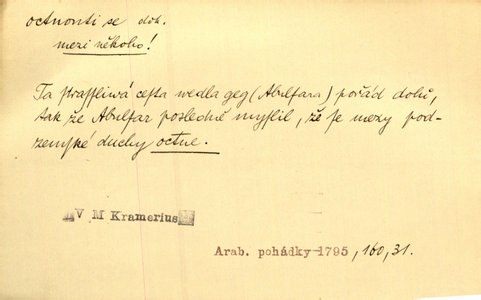 octnouti se dok.
mezi někoho!
Ta straſſliwá ceſta wedla geg (Abulfara) pořád dolů,
tak že Abulfar poſledně myſlil, že ſe mezy pod-
zemſké duchy octne.
V M Kramerius
Arab. pohádky 1795, 160, 31.